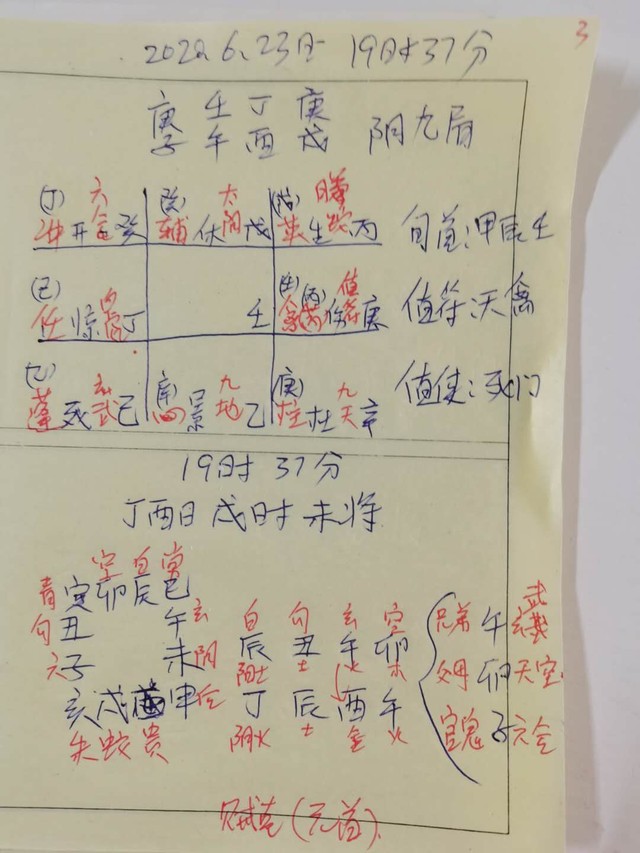 3
2020.6.23日 19时37分
庚 壬 丁 庚
子 午 酉 戌 阴九局
(丁) 六 (癸) 太 (戊) 螣
冲开合癸 辅休阴戊 英生蛇丙 旬首:甲辰壬
(己) 白 (壬) (丙) 值
任惊虎丁 壬 禽芮伤符庚 值符:天禽
(乙) 玄 (辛) 九 (庚) 九
蓬死武己 心景地乙 柱杜天辛 值使:死门
19时37分
丁酉日戌时未将
空 白 常
青 寅 卯 辰 巳
勾 丑 午 玄 白 勾 玄 空 兄弟 午 玄武
六 子 未 阴 辰 丑 午 卯 父母 卯 天空
阳土 土 火 木
亥 戌 酉 申 后 丁 辰 酉 午 官鬼 子 六合
朱 蛇 贵 阴火 土 金 火
(元首)